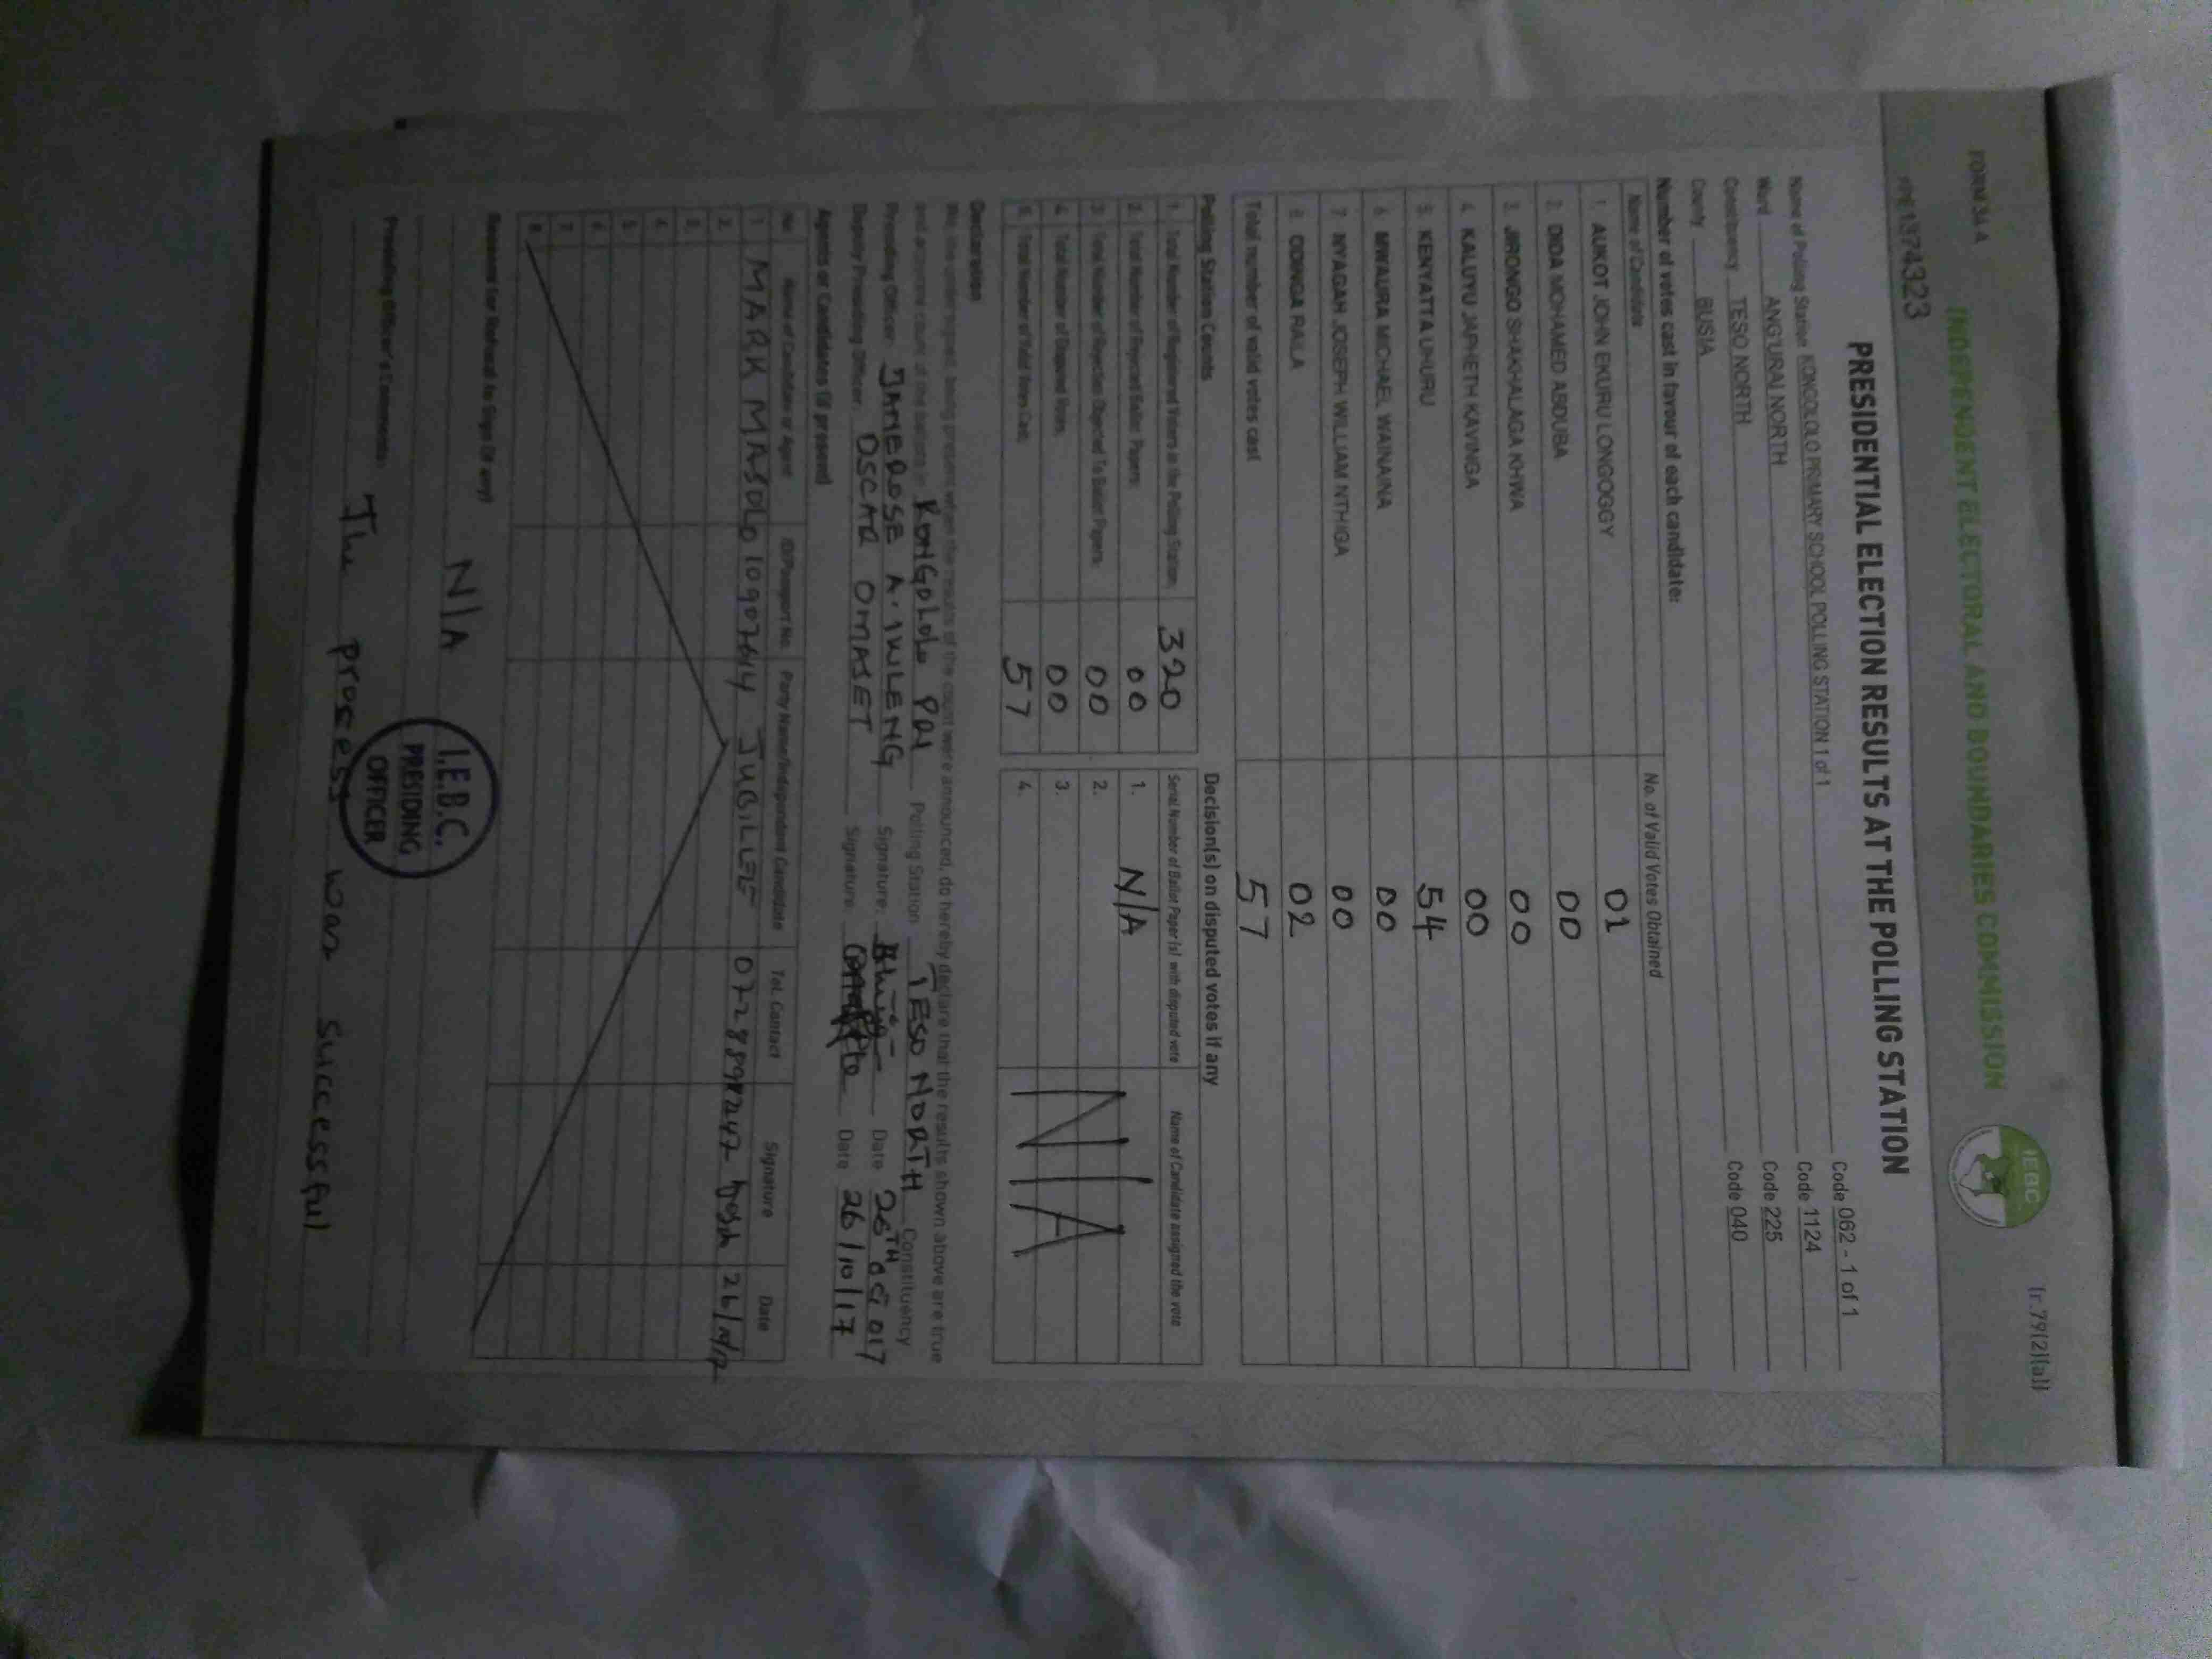 FORM 34 A
(r.79(2)(a))
INDEPENDENT ELECTORAL AND BOUNDARIES COMMISSION
IEBC
PRESIDENTIAL ELECTION RESULTS AT THE POLLING STATION
Name of Polling Station KONGOLOLO PRIMARY SCHOOL POLLING STATION 1 of 1 Code 062 - 1 of 1
Ward ANG'URAI NORTH Code 1124
Constituency TESO NORTH Code 225
County BUSIA Code 040
Number of votes cast in favour of each candidate:
Name of Candidate No. of Valid Votes Obtained
1. AUKOT JOHN EKURU LONGOGGY 01
2. DIDA MOHAMED ABDUBA 00
3. JIRONGO SHAKHALAGA KHWA 00
4. KALUYU JAPHETH KAVINGA 00
5. KENYATTA UHURU 54
6. MWAURA MICHAEL WAINAINA 00
7. NYAGAH JOSEPH WILLIAM NTHIGA 00
8. ODINGA RAILA 02
Total number of valid votes cast 57
Polling Station Counts
1. Total Number of Registered Voters in the Polling Station 320
2. Total Number of Rejected Ballot Papers 00
3. Total Number of Rejection Objected To Ballot Papers 00
4. Total Number of Disputed Votes 00
5. Total Number of Valid Votes Cast 57
Decision(s) on disputed votes if any
Serial Number of Ballot Paper(s) with disputed vote Name of Candidate assigned the vote
1. N/A
2.
3.
4.
N/A
Declaration
We, the undersigned, being present when the results of the count were announced, do hereby declare that the results shown above are true
and accurate count of the ballots in KONGOLOLO PRI Polling Station TESO NORTH Constituency
Presiding Officer JANEROSE A. IWLENG Signature: Date
Deputy Presiding Officer OSCAR OMASET Signature: Date 26/10/17
Agents or Candidates (if present)
No. Name of Candidate or Agent ID/Passport No. Party Name/Independent Candidate Tel. Contact Signature Date
1. MARK MASOLO JUBILEE
2.
3.
4.
5.
6.
7.
8.
Reasons for Refusal to Sign (if any)
N/A
I.E.B.C.
PRESIDING
OFFICER
Presiding Officer's Comments: The prosess was successful